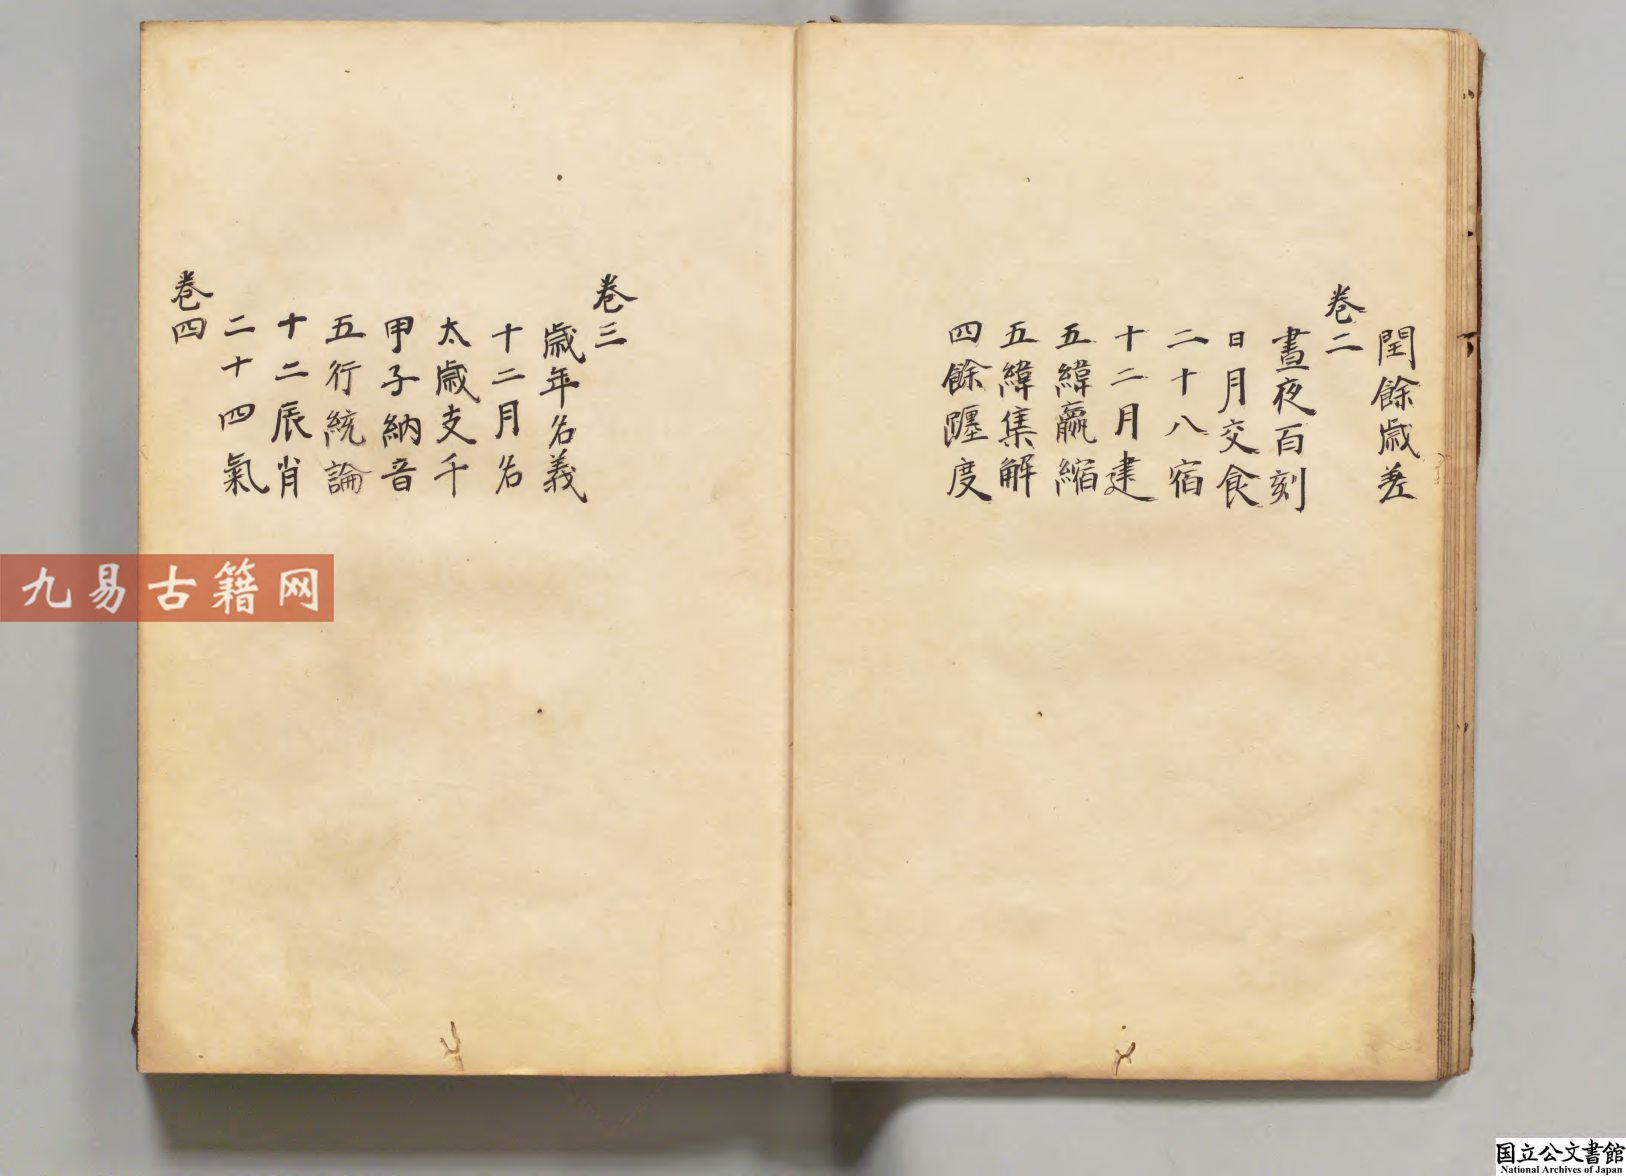 閏餘歲差
卷二
晝夜百刻
日月交食
二十八宿
十二月建
五緯贏縮
五緯集解
四餘躔度
卷三
歲年名義
十二月名
太歲支干
甲子納音
五行統論
十二辰肖
二十四氣
卷四
九易古籍网
国立公文書館
National Archives of Japan